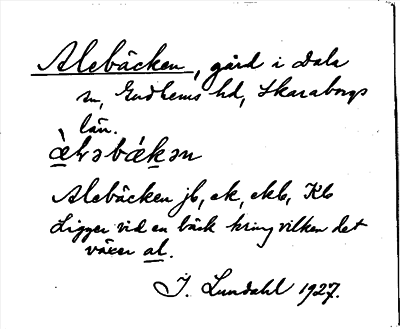 Alebäcken, gård i Dala
sn, Gudhems hd, Skaraborgs
län.
àlɘbákən
Alebäcken jb, ek, ekb, Kb
Ligger vid en bäck kring vilken det
växer al.
I. Lundahl 1927.